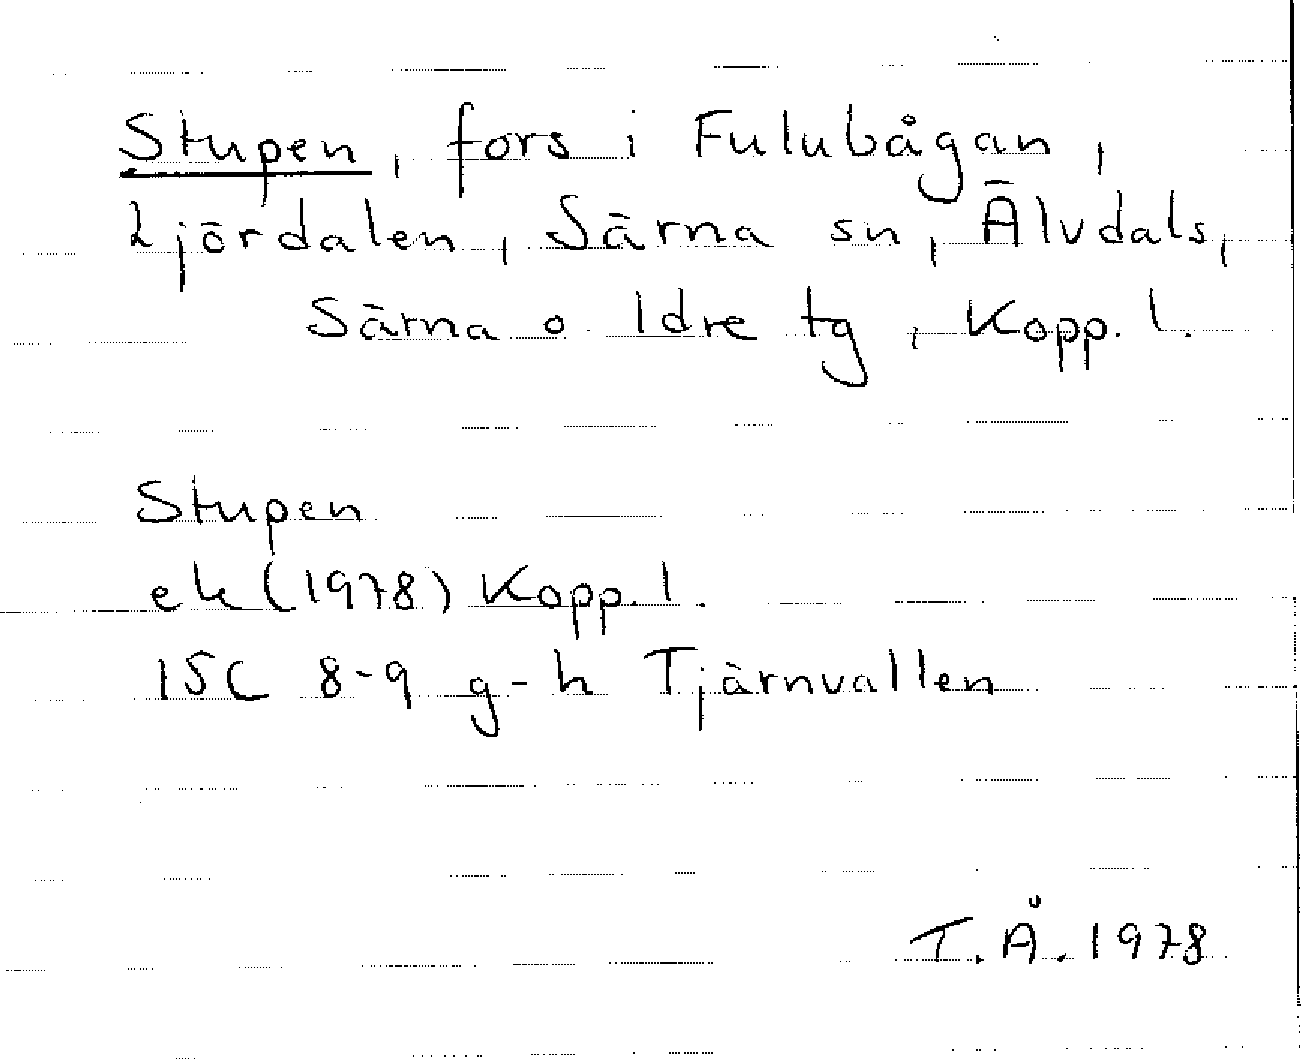 Stupen, fors i Fulubågan,
Ljördalen, Särna sn, Älvdals,
Särna o. Idre tg, Kopp. l.
Stupen
ek (1978) Kopp. l.
15C 8-9 g-h Tjärnvallen
T.Å. 1978